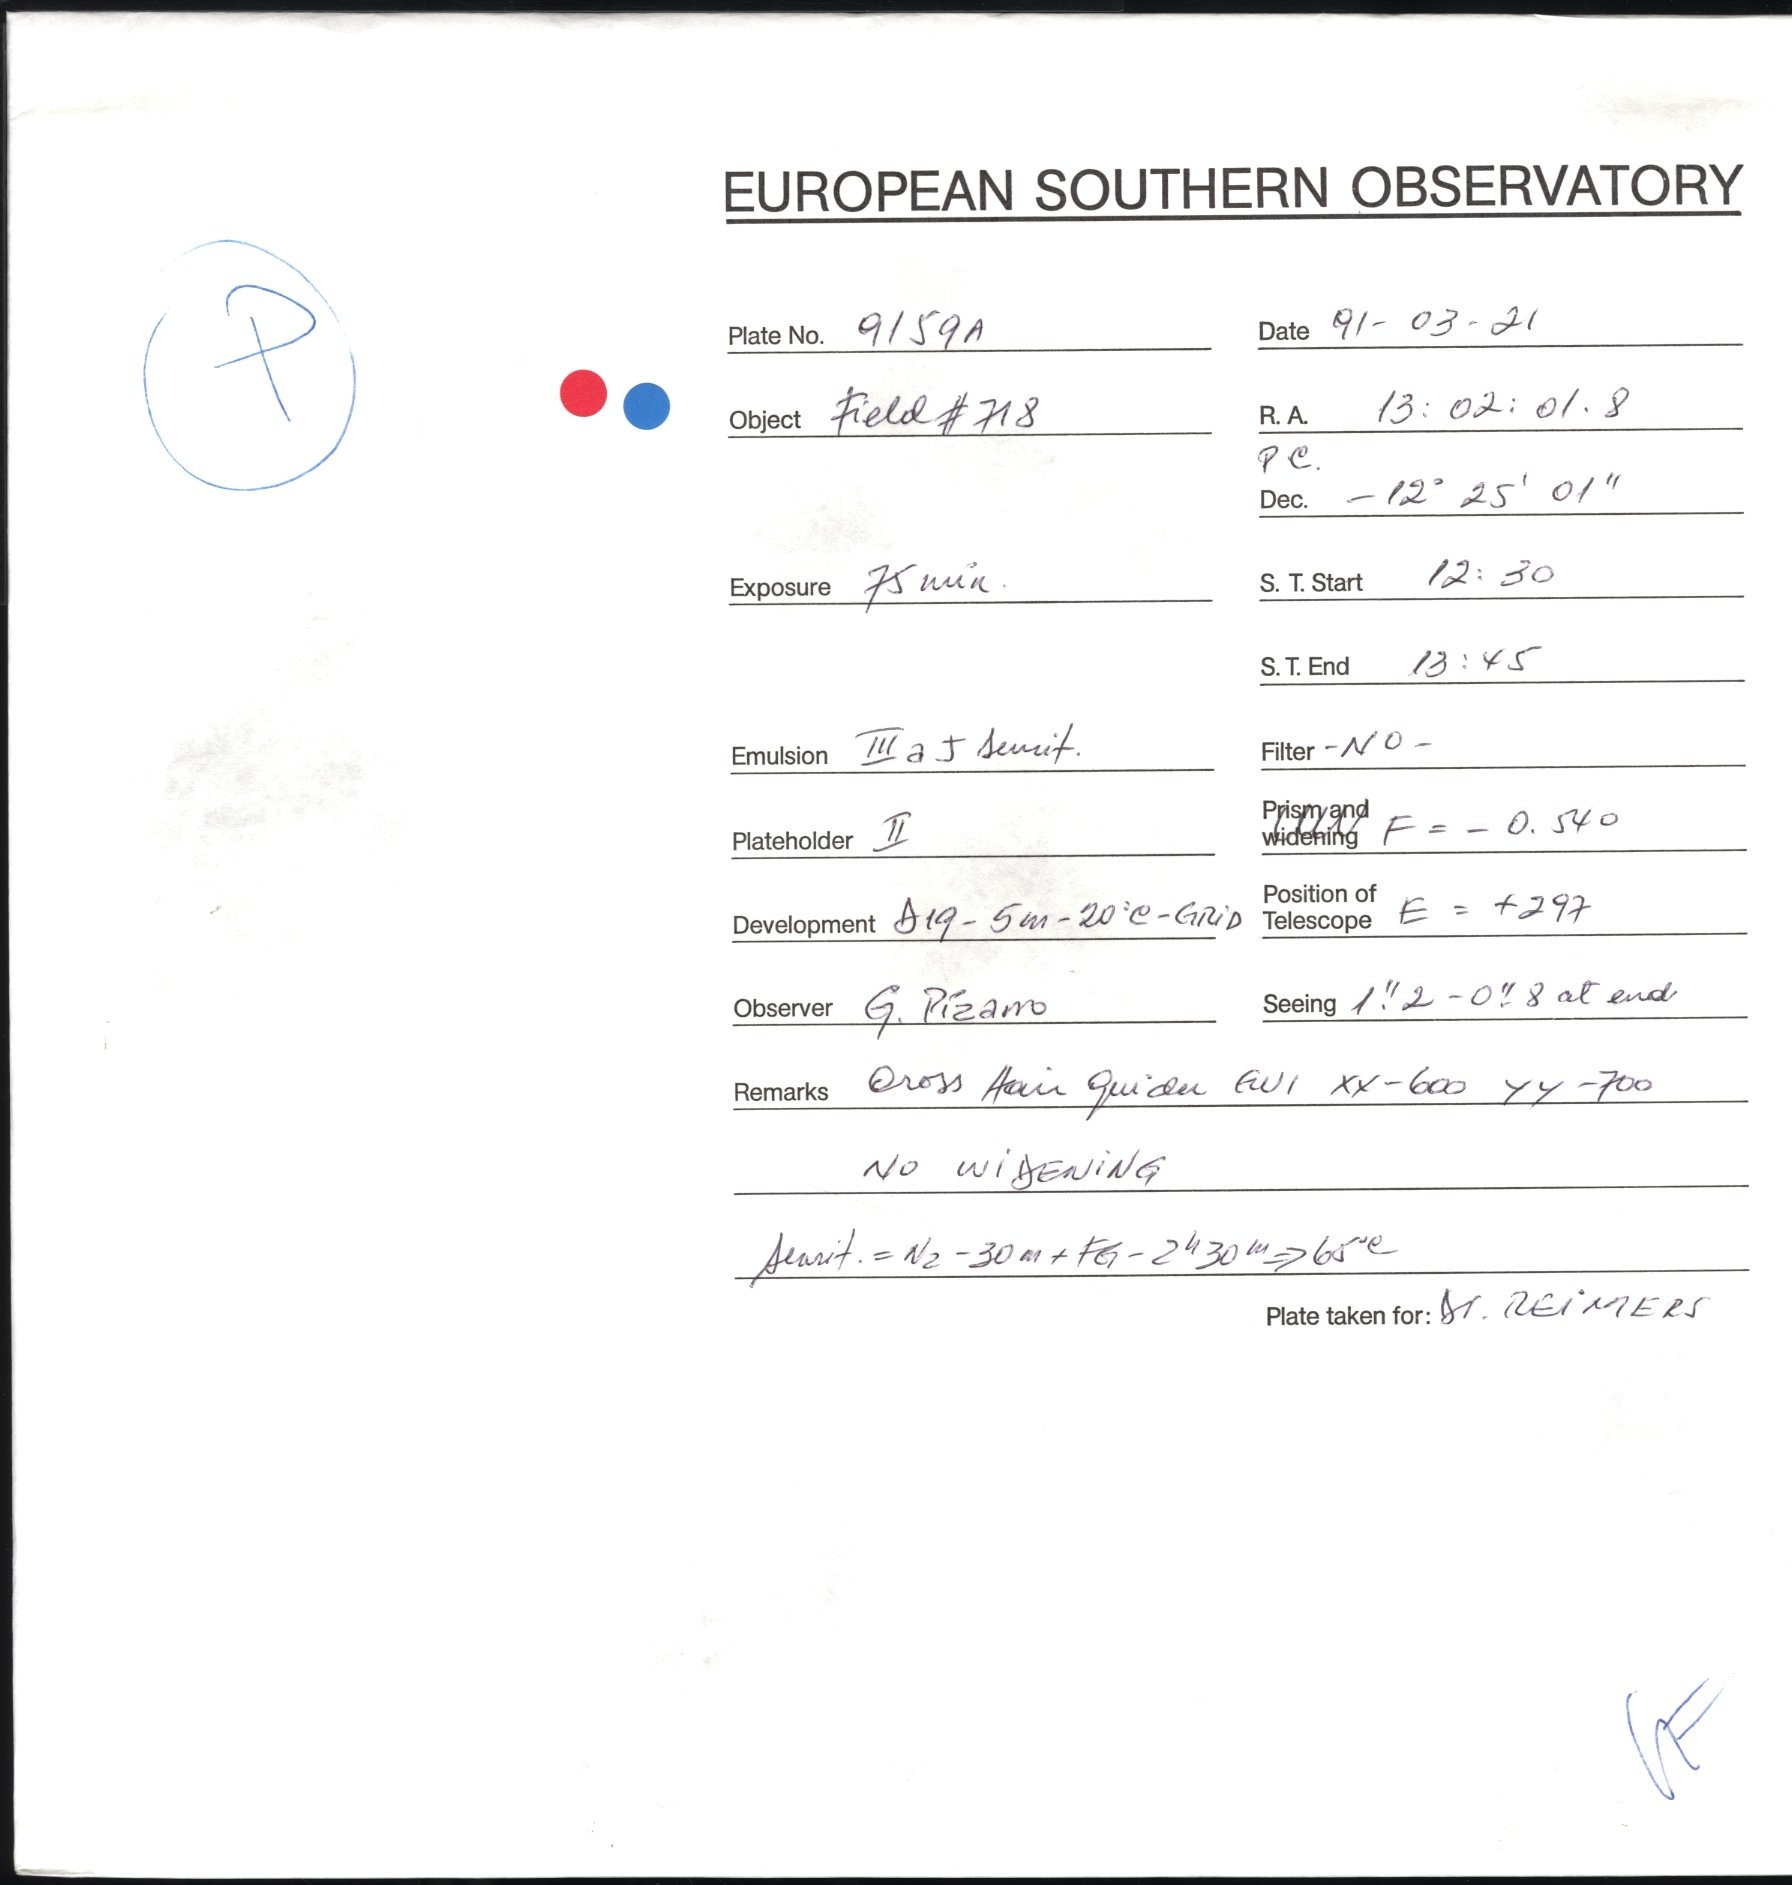 EUROPEAN SOUTHERN OBSERVATORY
P
Plate No. 9159A Date 91-03-21
Object Field # 718 R. A. 13: 02: 01.8
P C.
Dec. -12° 25' 01"
Exposure 75 min. S. T. Start 12:30
S. T. End 13:45
Emulsion III a J Sensit. Filter -NO-
Plateholder II Prism and widening F = - 0.540
Development D19-5m-20°C-GRiD Position of Telescope E = +297
Observer G. Pizarro Seeing 1".2 - 0".8 at end
Remarks Cross Hair Guider XX-600 YY-700
NO WIDENING
Sensit. = N2-30m + FG-2h30m => 65°C
Plate taken for: Dr. REiMERS